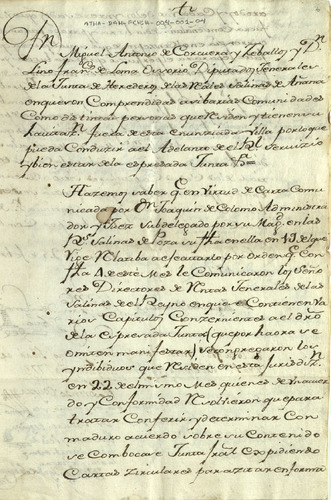 ATHA-DAH-FCHSA-004-001-04
Dn
Miguel Antonio de Corcuera y Zeballos y Dn
Lino Franco de Loma Ossorio Diputados Jenerales
de la Junta de Herederos de las Reales Salinas de Añana
en que son Comprendidas a varias Comunidades
como distintas personas que Residen y tienen su
havitazn fuera de esta enunziada Villa por lo que
pueda Conduzir a el Adelante del Rl Servizio
y bien estar de la espresada Junta &a=
Hazemos saber q en Virtud de Carta Comu
nicada por Dn Joaquin de Colomo Administra
dor y Juez Subdelegado por su Magd en las
Rs Salinas de Poza su fha en ella en 13 del que
Vice Narriba a efecto por Orden q Con
fha 1 de este Mes le Comunicaron los Seño
res Directores de Rentas Jenerales de las
Salinas del Reyno en que se Contienen Va
rios Capitulos Conzernientes a el dro
de la Espresada Junta (que por haora se
omiten manifestar) se Congregaron los
yndibiduos que Residen en esta Jurisdizn
en 22 del mismo Mes quienes de Vn acuer
do y Conformidad Resolvieron que para
tratar Conferir y determinar Con
maduro acuerdo sobre su Contenido
se Combocase Junta Jral expidiendo
Cartas Zirculares para azitar en forma